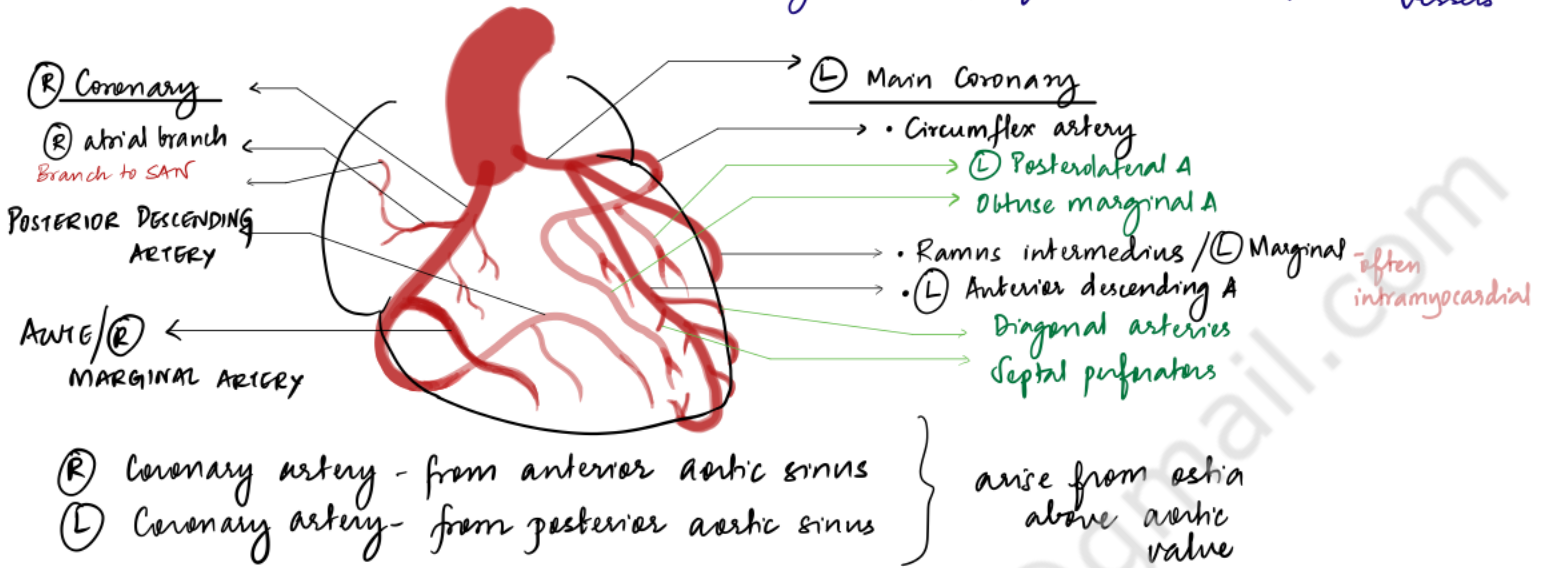 vessels
Ⓡ Coronary
Ⓡ atrial branch
Branch to SAN
POSTERIOR DESCENDING
ARTERY
ACUTE/Ⓡ
MARGINAL ARTERY
Ⓛ Main Coronary
• Circumflex artery
Ⓛ Posterolateral A
Obtuse marginal A
• Ramus intermedius /Ⓛ Marginal - often
intramyocardial
• Ⓛ Anterior descending A
Diagonal arteries
Septal perforators
Ⓡ Coronary artery - from anterior aortic sinus
Ⓛ Coronary artery - from posterior aortic sinus
arise from ostia
above aortic
valve
@gmail.com